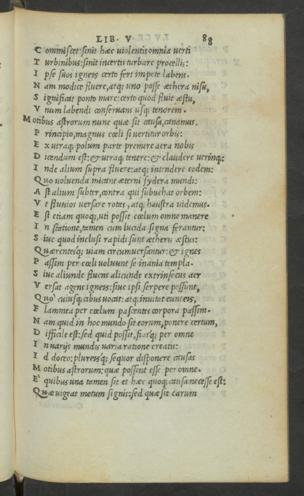 LIB. V 88
Commisceri: sinit haec violentis omnia verti
Turbinibus: sinit incertis turbare procellis:
Ipse suos igneis certo fert impete labens.
Nam modice fluere, atq; uno posse aethera nisu,
Significat ponto mare: certo quod fluit aestu,
Vnum labendi conservans usq; tenorem.
Motibus astrorum nunc quae sit causa, canamus.
Principio, magnus coeli si vertitur orbis:
Ex utraq; polum parte premere aera nobis
Dicendum est: & extraq; tenere: & claudere utrinq;:
Inde alium supra fluere: atq; intendere eodem:
Quo volvenda micant aeterni sydera mundi:
Ast alium subter, contra qui subvehat orbem:
Vt fluvios versare rotas, atq; haustra videmus.
Est etiam quoq; uti possit coelum omne manere
In statione, tamen cum lucida signa ferantur:
Sive quod inclusi rapidi sunt aetheris aestus:
Quaerentesq; viam circumversantur: & ignes
Passim per coeli volvunt se inania templa:
Sive aliunde fluens alicunde extrinsecus aer
Versat agens igneis: sive ipsi serpere possunt,
Quo cuiusq; cibus vocat: atq; invitat euntes,
Flammea per coelum pascentes corpora passim.
Nam quid in hoc mundo sit eorum, ponere certum,
Difficile est: sed quid possit, fiatq; per omne
In variis mundis varia ratione creatis:
Id doceo: plureisq; sequor disponere causas
Motibus astrorum: quae possint esse per omne.
E quibus una tamen sit et haec quoq; causa necesse est:
Quae vigeat motum signis: sed quae sit earum